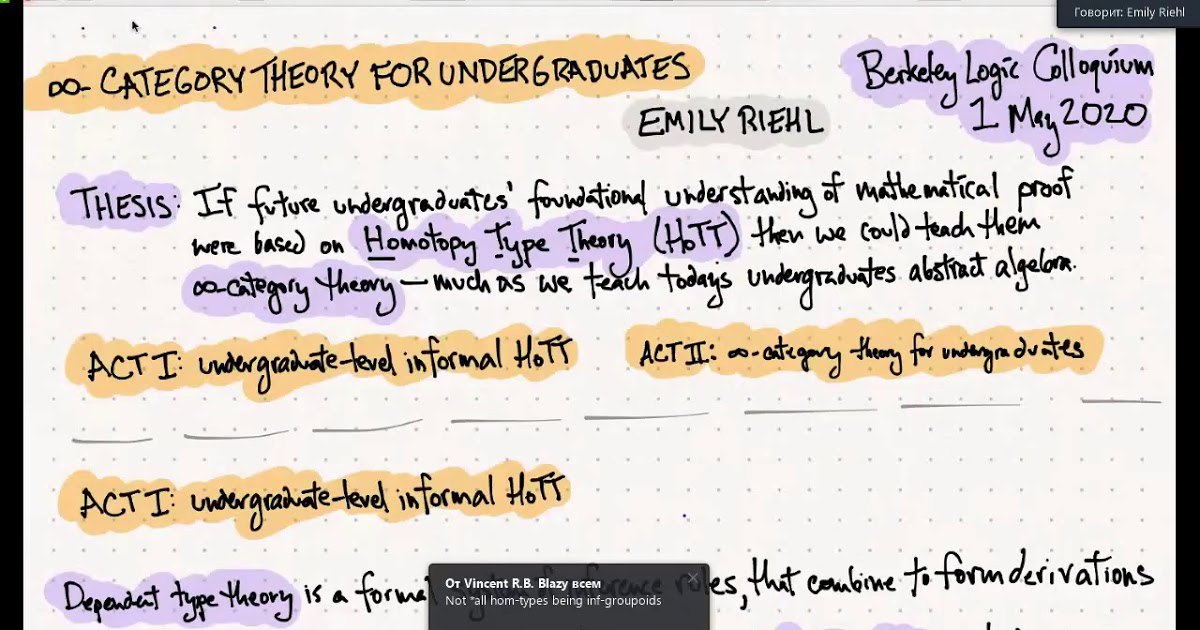 Говорит: Emily Riehl
∞-CATEGORY THEORY FOR UNDERGRADUATES
Berkeley Logic Colloquium
EMILY RIEHL
1 May 2020
THESIS: If future undergraduates' foundational understanding of mathematical proof
were based on Homotopy Type Theory (HoTT) then we could teach them
∞-category theory — much as we teach todays undergraduates abstract algebra.
ACT I: undergraduate-level informal HoTT
ACT II: ∞-category theory for undergraduates
ACT I: undergraduate-level informal HoTT
Dependent type theory is a formal rules, that combine to form derivations
От Vincent R.B. Blazy всем
Not *all hom-types being inf-groupoids